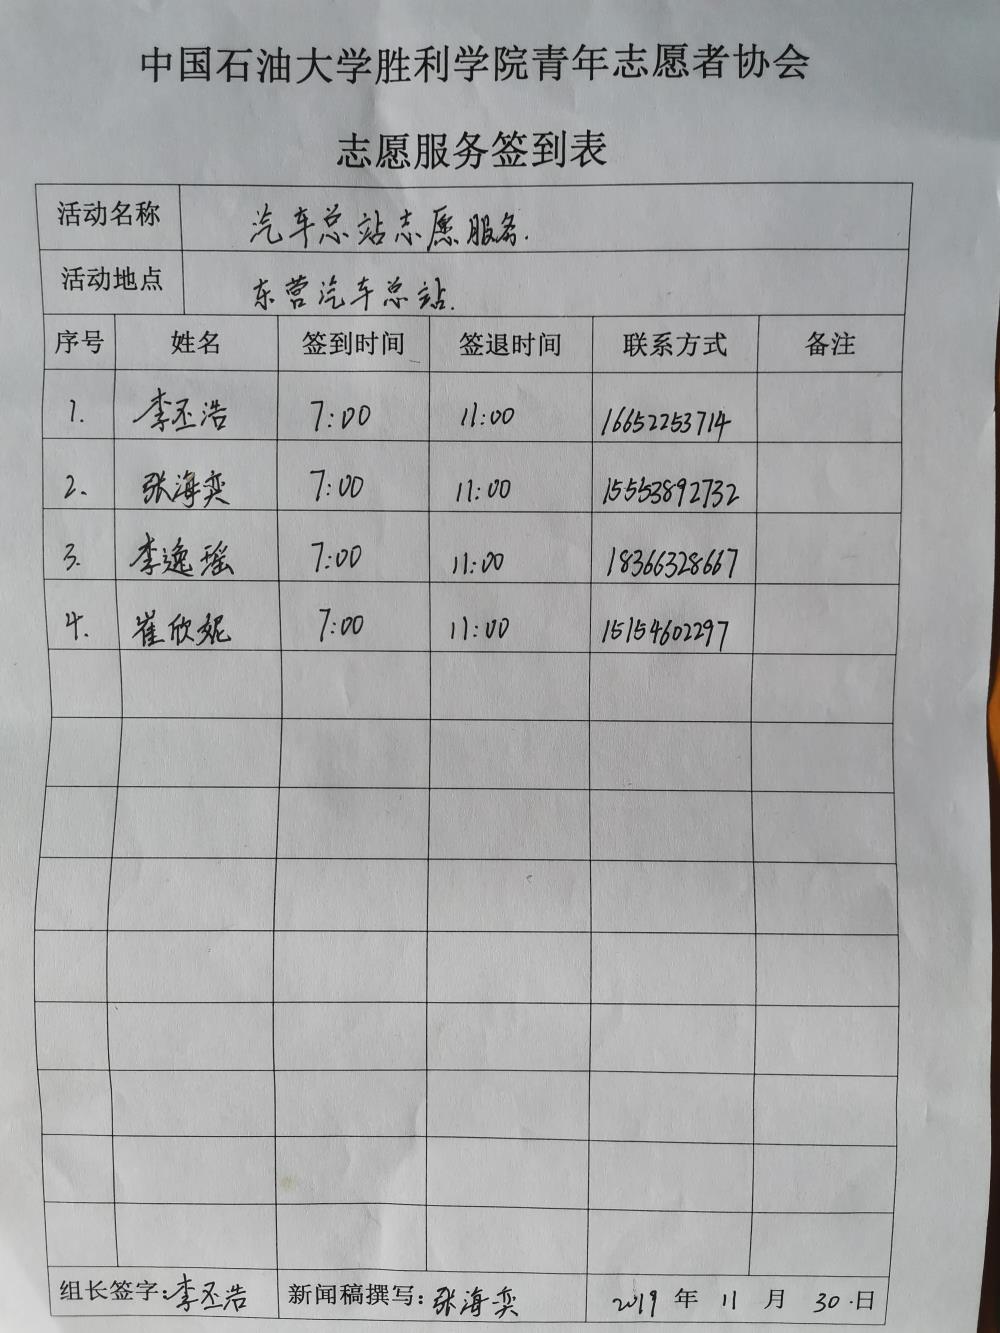 中国石油大学胜利学院青年志愿者协会
志愿服务签到表
活动名称 汽车总站志愿服务.
活动地点 东营汽车总站.
序号 姓名 签到时间 签退时间 联系方式 备注
1. 李丕浩 7:00 11:00 16652253714
2. 张海奕 7:00 11:00 15553892732
3. 李逸瑶 7:00 11:00 18366328667
4. 崔欣妮 7:00 11:00 15154602297
组长签字:李丕浩 新闻稿撰写:张海奕 2019 年 11 月 30 .日